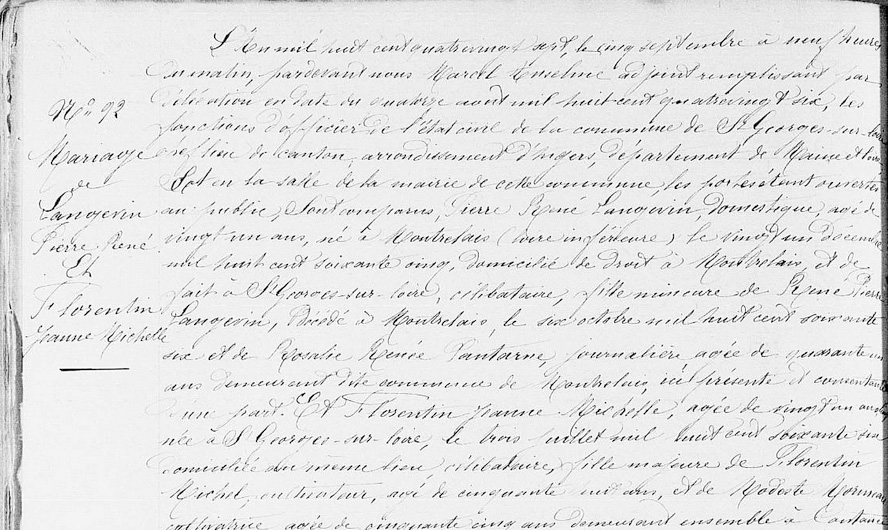 L'An mil huit cent quatrevingt sept, le cinq septembre à neuf heures
du matin, pardevant nous Marcel Anselme adjoint remplissant par
délégation en date du quatorze août mil huit cent quatrevingt six, les
fonctions d'officier de l'état civil de la commune de St Georges-sur-Loire
chef lieu de canton, arrondissement d'Angers, département de Maine et Loire
et en la salle de la mairie de cette commune, les portes étant ouvertes
au public, Sont comparus, Pierre René Langevin, domestique, agé de
vingt un ans, né à Montrelais (Loire inférieure) le vingt un décembre
mil huit cent soixante cinq, domicilié de droit à Montrelais, et de
fait à St Georges-sur-Loire, célibataire, fils mineure de René Pierre
Langevin, décédé à Montrelais, le six octobre mil huit cent soixante
six et de Rosalie Renée journalière, agée de quarante un
ans demeurant dite commune de Montrelais, ici présente et consentante
d'une part. Et Florentin Jeanne Michelle, agée de vingt un ans
née à St Georges-sur-Loire, le trois juillet mil huit cent soixante six
domiciliée au même lieu célibataire, fille majeure de Florentin
Michel, cultivateur, agé de cinquante huit ans, et de Modeste
cultivatrice agée de cinquante cinq ans demeurant ensemble à
No 92
Mariage
de
Langevin
Pierre René
Et
Florentin
Jeanne Michelle